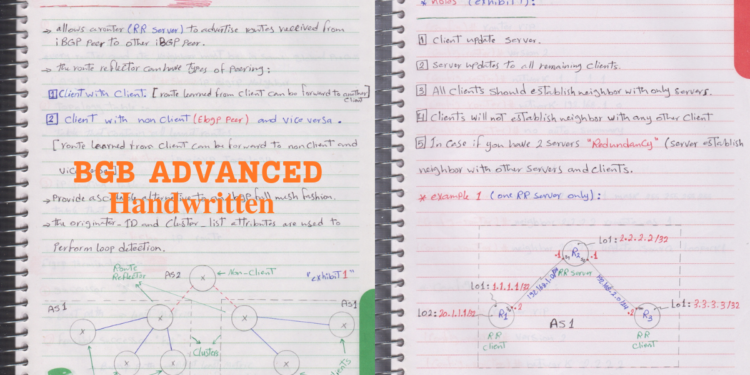 → allows a router (RR server) to advertise routes received from
iBGP Peer to other iBGP Peer.
→ the route reflector can have types of peering:
1 Client with Client. [route learned from client can be forward to another
client]
2 Client with non Client (Ebgp Peer) and vice versa.
[route learned from Client can be forward to nonClient and
vic
BGB ADVANCED
Handwritten
→ Provide a full mesh fashion.
→ the originator_ID and Cluster_list attributes are used to
Perform loop detection.
Route
Reflector
AS2
x
← Non-Client
"exhibit 1"
AS1
AS1
x
x
x
x
Cluster
x
x
x
* notes (exhibit 1):
1 Client update Server.
2 Server updates to all remaining Clients.
3 All Clients should establish neighbor with only Servers.
4 Clients will not establish neighbor with any other Client
5 In Case if you have 2 Servers "Redundancy" (server establish
neighbor with other servers and Clients.
* example 1 (one RR server only):
Lo1: 2.2.2.2/32
R2
.1
.1
RR server
Lo1: 1.1.1.1/32
Lo1: 3.3.3.3/32
.2
.2
R1
R3
AS 1
RR
client
RR
Client